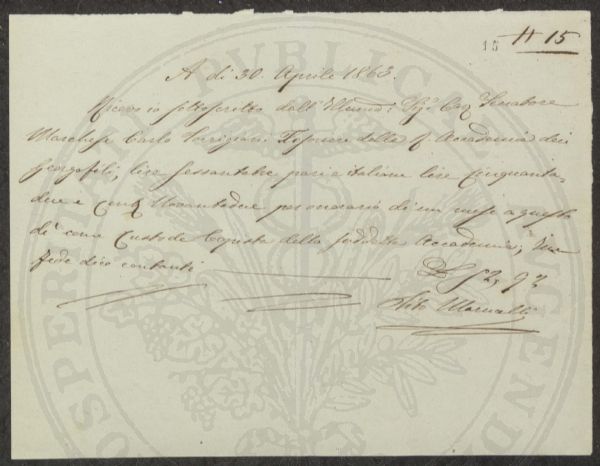 15 # 15
A di 30. Aprile 1863.
Ricevo io sottoscritto dall' Illmo: Sig.r Cav Senatore
Marchese Carlo Torrigiani Tesoriere della R. Accademia dei
Georgofili, lire sessantatre pari a italiane lire cinquanta,
due e Cen novantadue per onorario di un mese a questo
dì come Custode Copista della suddetta Accademia; In
fede dico contanti
£ 52, 92
Vito
PROSPERITATI PUBLICAE AUGENDAE